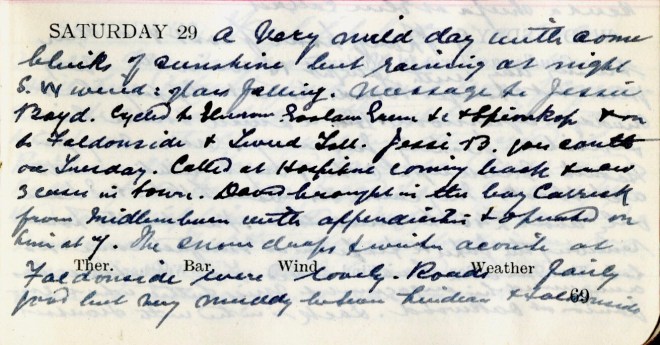 SATURDAY 29 A very mild day with some
blinks of sunshine but raining at night
S.W wind: glass falling. Message to Jessie
Boyd. Cycled to & on
to Faldonside & Tweed Jessie B. goes south
on Tuesday. Called at Hospital coming back & saw
3 cases in town. David brought in the boy
from Midlemburn with appendicitis & operated on
him at 7. The snowdrops & winter aconite at
Ther. Bar. Wind Weather
Faldonside were lovely. Roads fairly
good but very muddy between Lindean & Faldonside
69